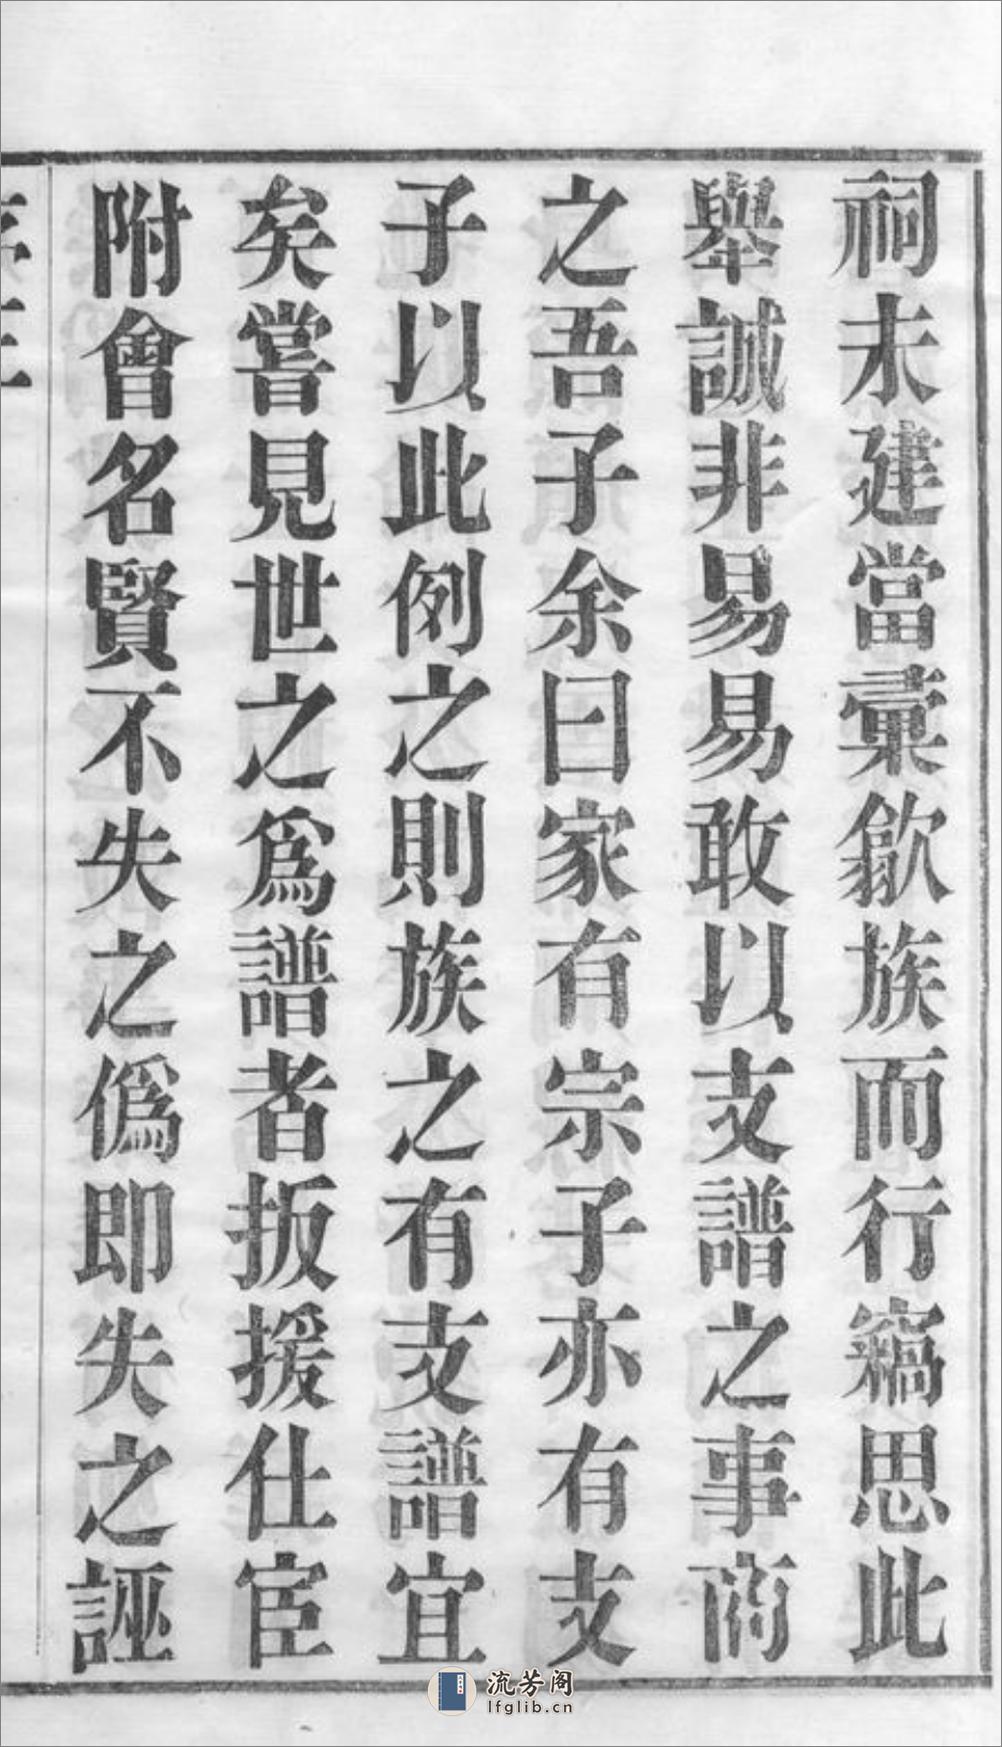 祠未建當彙歙族而行竊思此
舉誠非易易敢以支譜之事商
之吾子余曰家有宗子亦有支
子以此例之則族之有支譜宜
矣嘗見世之爲譜者扳援仕宦
附會名賢不失之僞即失之誣
流芳阁
lfglib.cn